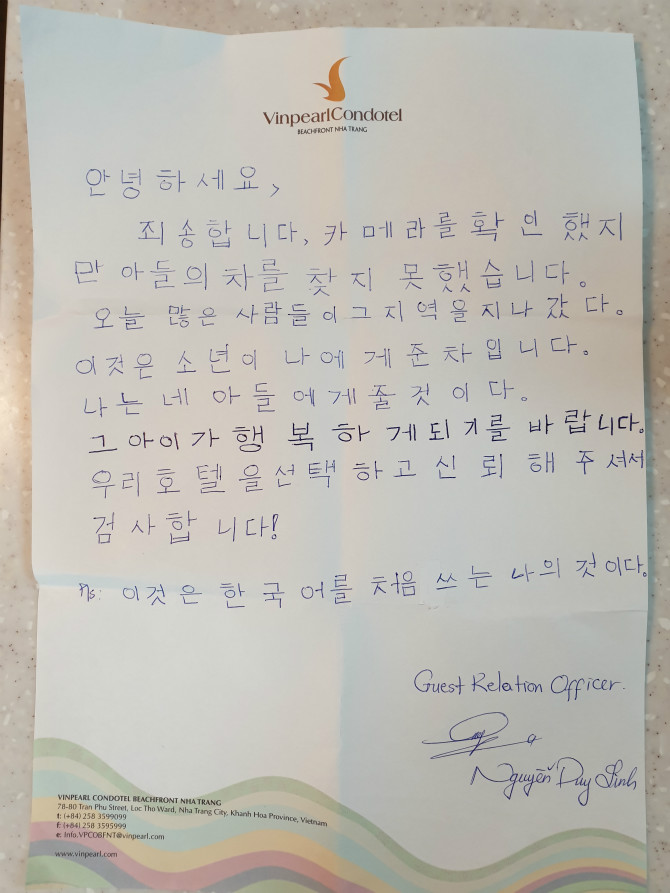 VinpearlCondotel
BEACHFRONT NHA TRANG
안녕하세요,
죄송합니다, 카메라를 확인했지
만 아들의 차를 찾지 못했습니다.
오늘 많은 사람들이 그 지역을 지나갔다.
이것은 소년이 나에게 준 차입니다.
나는 네 아들에게 줄 것이다.
그 아이가 행복하게 되기를 바랍니다.
우리 호텔을 선택하고 신뢰해 주셔서
검사합니다!
Ps: 이것은 한국어를 처음 쓰는 나의 것이다.
Guest Relation Officer.
Nguyễn Duy Linh
VINPEARL CONDOTEL BEACHFRONT NHA TRANG
78-80 Tran Phu Street, Loc Tho Ward, Nha Trang City, Khanh Hoa Province, Vietnam
t: (+84) 258 3599099
f: (+84) 258 3595999
e: Info.VPCOBFNT@vinpearl.com
www.vinpearl.com